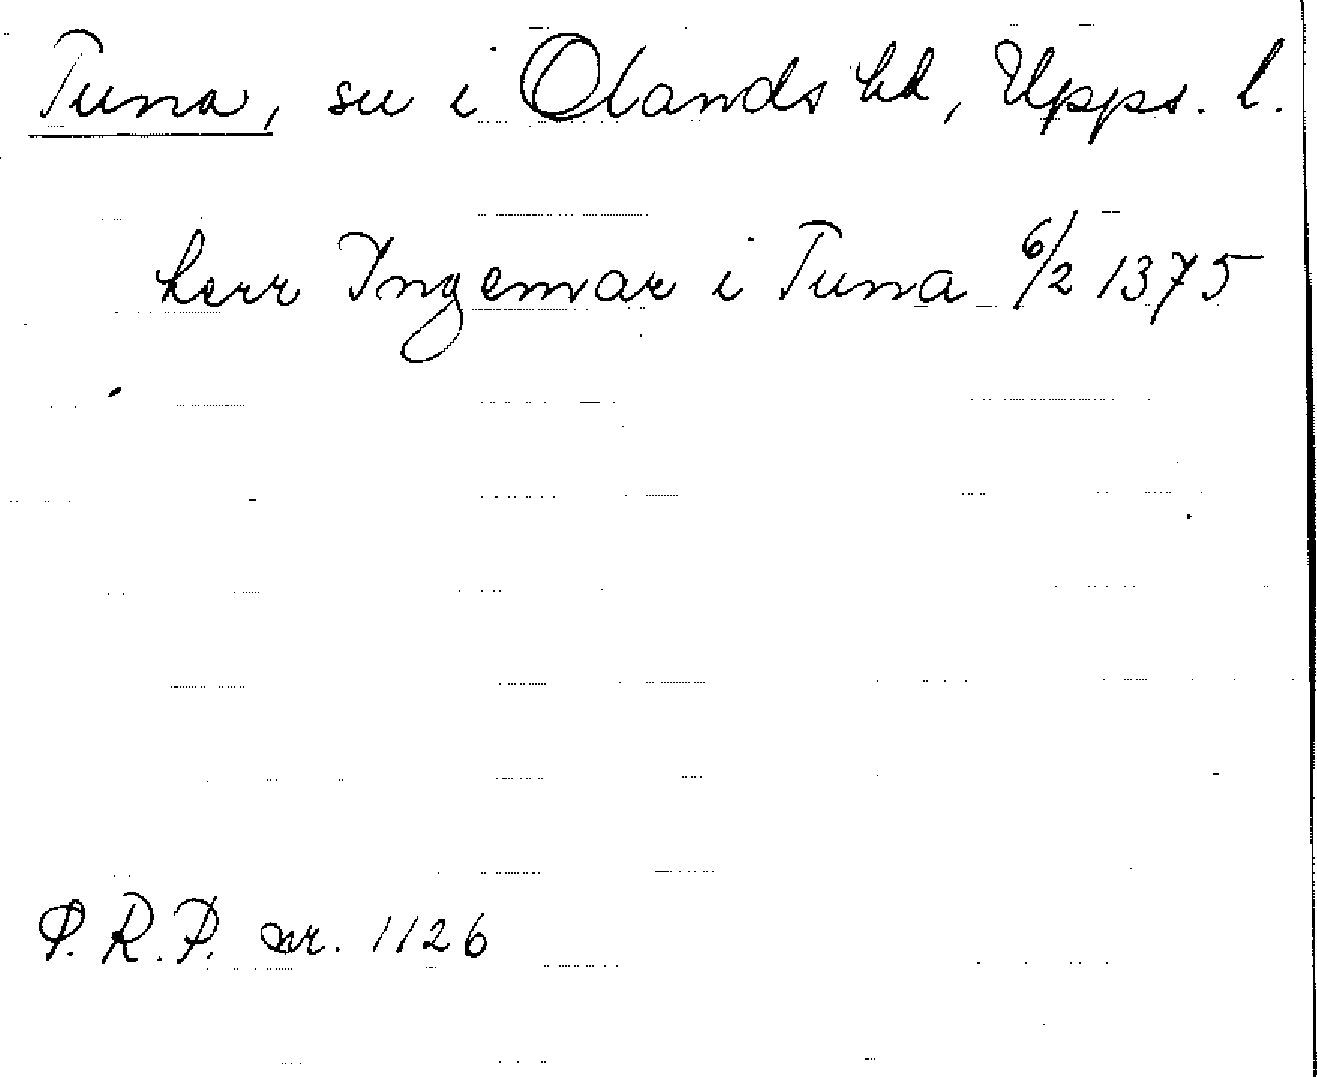 Tuna, sn i Olands hd, Upps. l.
herr Ingemar i Tuna 6/2 1375
P.R.P. nr. 1126